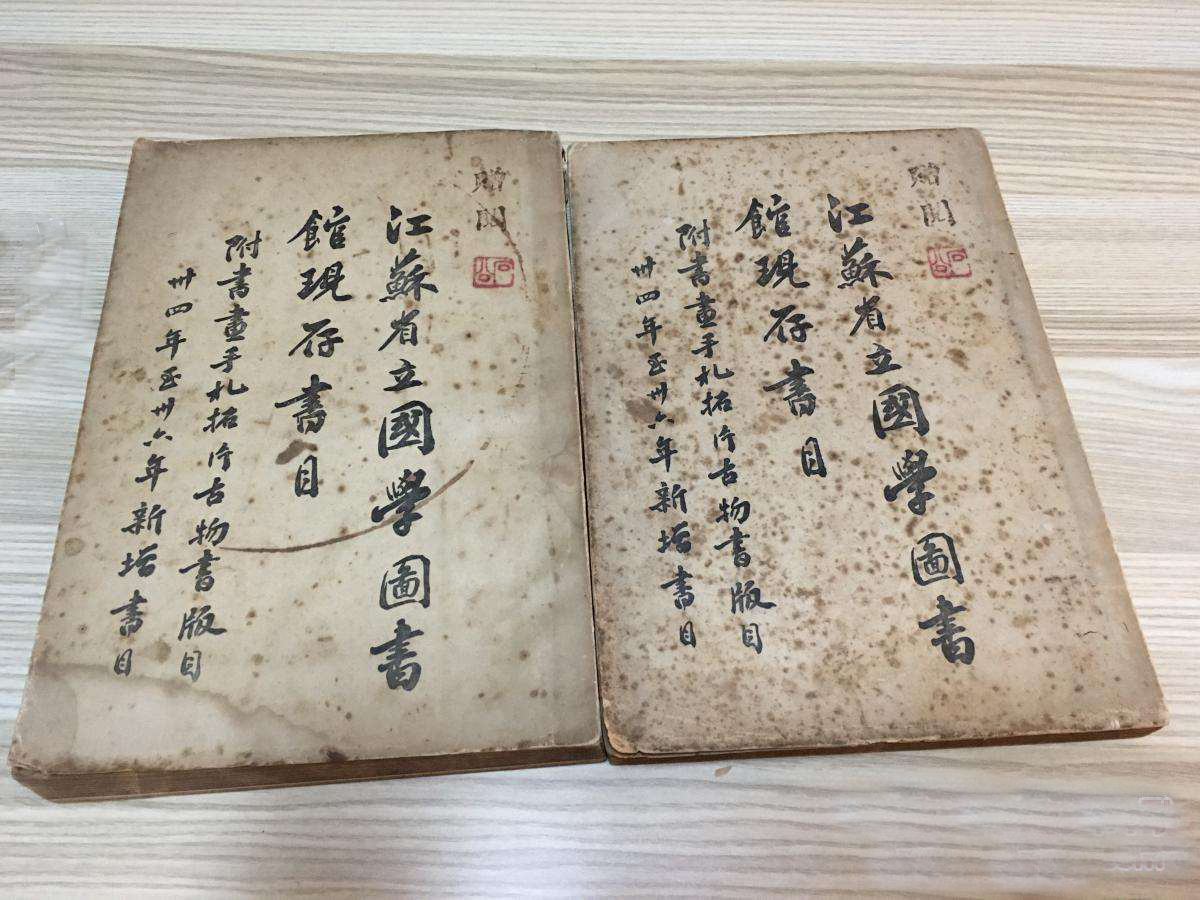 贈閱
江蘇省立國學圖書
館現存書目
附書畫手札拓片古物書版目
卅四年至卅六年新增書目
贈閱
江蘇省立國學圖書
館現存書目
附書畫手札拓片古物書版目
卅四年至卅六年新增書目